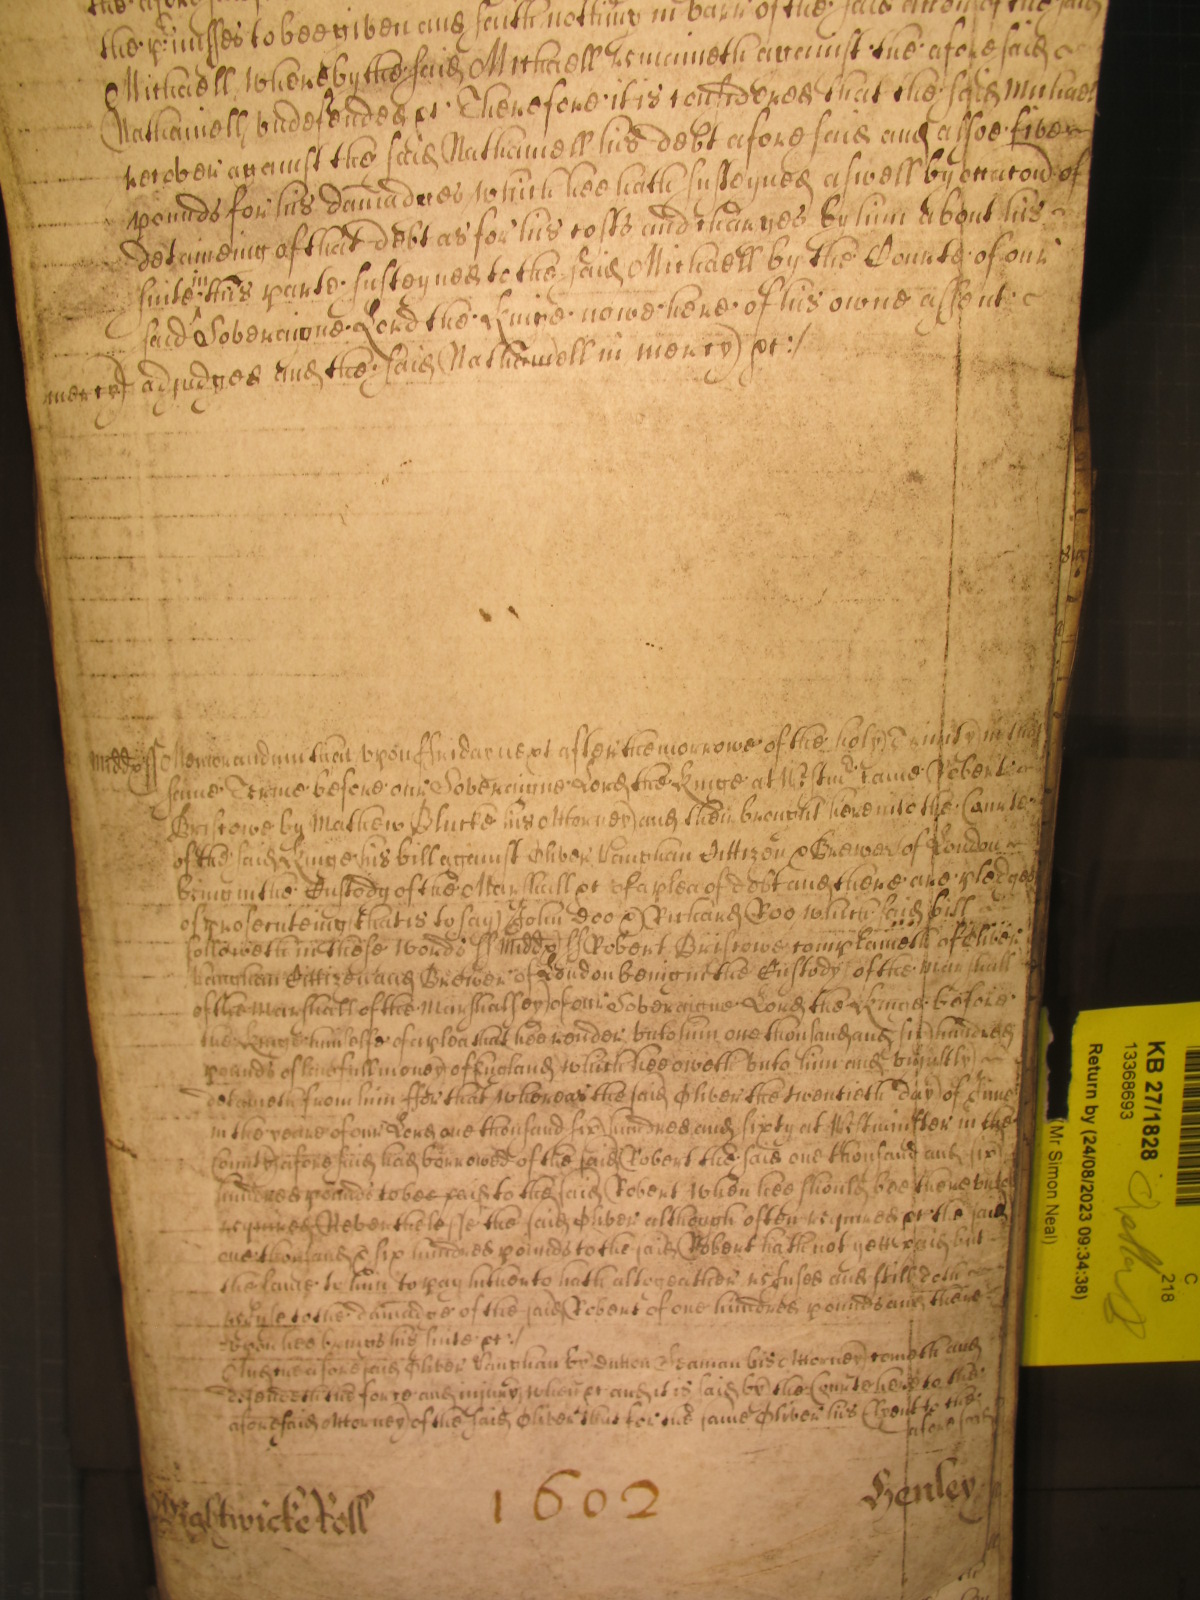 the p'misses to bee given and saith nothing in barr of the said accon of the said
Michaell whereby the said Michaell remaineth against the aforesaid
Nathaniell undefended &c Therefore it is considered that the said Michaell
recover against the said Nathaniell his debt aforesaid and alsoe five
pounds for his damadges which hee hath susteyned aswell by occacon of
detaineing of that debt as for his costs and charges by him about his
suite in this parte susteyned to the said Michaell by the Courte of our
said Soveraigne Lord the Kinge nowe here of his owne assent
mercy adjudged and the said Nathaniell in mercy &c:/
Midd'x ss Memorandum that upon ffriday next after the morrowe of the holy Trinity in this
same Terme before our Soveraigne Lord the Kinge at Westm'r came Robert
Bristowe by Mathew Plucke his Attorney and then brought here into the Courte
of the said Kinge his bill against Oliver Vaughan Cittizen & Brewer of London
being in the Custody of the Marshall &c of a plea of debt and there are pledges
of prosecuteing that is to say John Doo & Richard Roo which said bill
followeth in these words ss Midd'x ss Robert Bristowe complaineth of Oliver
Vaughan Cittizen and Brewer of London being in the Custody of the Marshall
of the Marshall of the Marshalsey of our Soveraigne Lord the Kinge before
the Kinge himselfe of a plea that hee render unto him one thousand and six hundred
pounds of lawfull money of England which hee oweth unto him and unjustly
detaineth from him ffor that whereas the said Oliver the twentieth day of June
in the yeare of our Lord one thousand six hundred and sixty at Westminster in the
County aforesaid had borrowed of the said Robert the said one thousand and six
hundred pounds to bee paid to the said Robert when hee should bee thereunto
required Neverthelesse the said Oliver although often required &c the said
one thousand & six hundred pounds to the said Robert hath not yett paid but
the same to him to pay hitherto hath altogeather refused and still doth
refuse to the damadge of the said Robert of one hundred pounds and there
upon hee brings his suite &c:/
And the aforesaid Oliver Vaughan by Dutton Seaman his Attorney cometh and
defendeth the force and injury when &c and it is said by the Courte here to the
aforesaid Attorney of the said Oliver that for the same Oliver his Clyent to the
aforesaid
Wightwicke Roll 1602 Henley
KB 27/1828
13368693
Return by (24/08/2023 09:34:38)
(Mr Simon Neal)
C
218